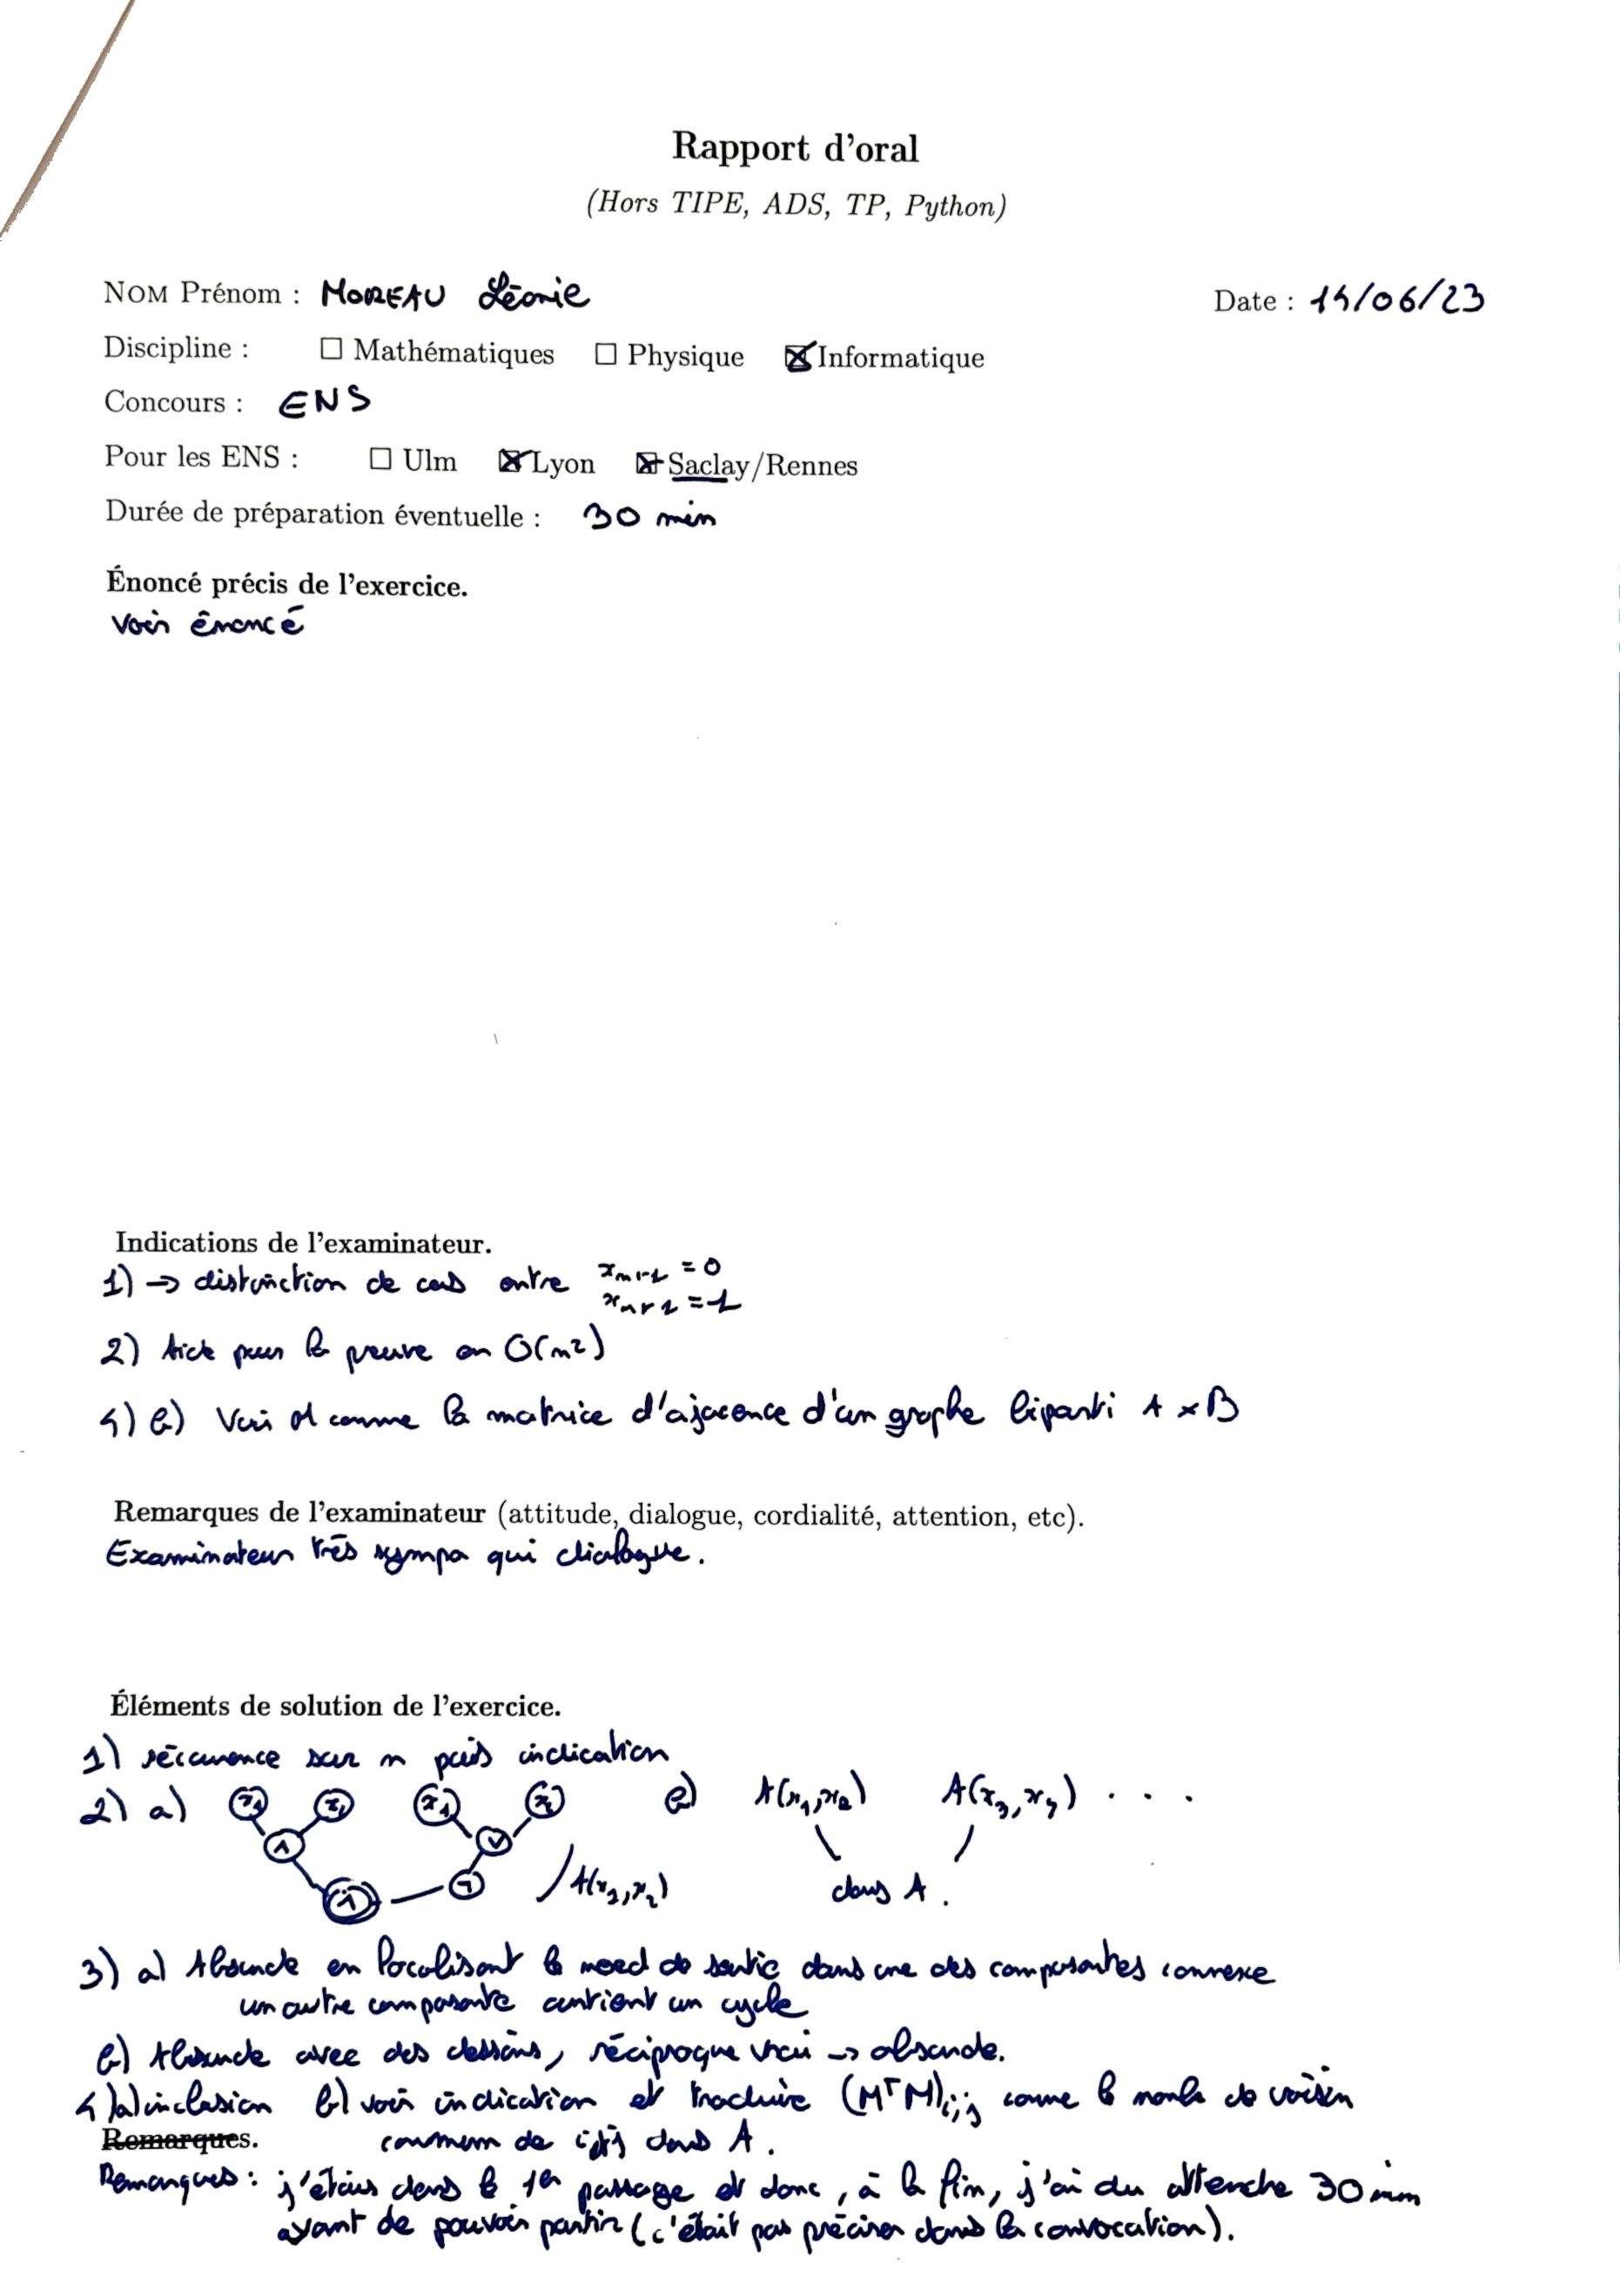 Rapport d'oral
(Hors TIPE, ADS, TP, Python)
NOM Prénom : MOREAU Léonie
Date : 14/06/23
Discipline : ☐ Mathématiques ☐ Physique ☒ Informatique
Concours : ENS
Pour les ENS : ☐ Ulm ☒ Lyon ☒ Saclay/Rennes
Durée de préparation éventuelle : 30 min
Énoncé précis de l'exercice.
Voir énoncé
Indications de l'examinateur.
1) → distinction de cas entre x_{n+1} = 0
x_{n+1} = 1
2) Aide pour la preuve en O(n²)
4) b) Voir M comme la matrice d'ajacence d'un graphe biparti A × B
Remarques de l'examinateur (attitude, dialogue, cordialité, attention, etc).
Examinateur très sympa qui dialogue.
Éléments de solution de l'exercice.
1) récurrence sur n puis indication
2) a) x₁ x₂ x₁ x₂ b) A(x₁,x₂) A(x₃,x₄) . . .
∧ ∨
∧ ¬ A(x₁,x₂) dans A.
3) a) Absurde en localisant le noeud de sortie dans une des composantes connexe
un autre composante contient un cycle
b) Absurde avec des dessins, réciproque vrai → absurde.
4) a) inclusion b) voir indication et traduire (MᵀM)i,j comme le nombre de voisin
Remarques. commun de i et j dans A.
Remarques : j'étais dans le 1er passage et donc, à la fin, j'ai du attendre 30 min
avant de pouvoir partir (c'était pas préciser dans la convocation).